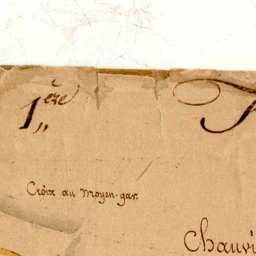 1ère
Croix au moyen-âge.
Chauvi